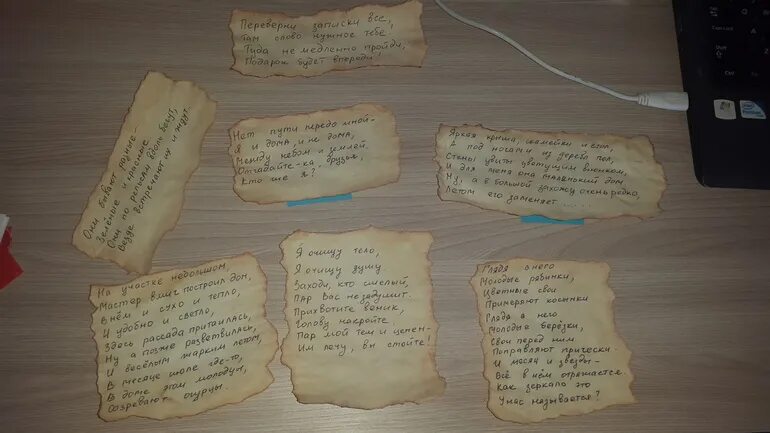 Переверни записки все,
Там слово нужное тебе
Туда не медленно пройди,
Подарок будет впереди!
Они бывают разные-
Зелёные и красные
Они по рельсам вдоль бегут,
Везде встречают их и ждут.
Нет пути передо мной-
Я и дома, и не дома,
Между небом и землёй.
Отгадайте-ка, друзья,
Кто же я?
Яркая крыша, скамейки и стол,
А под ногами из дерева пол,
Стены увиты цветущим вьюнком,
И для меня она маленький дом.
Ну, а в большой захожу очень редко,
Летом его заменяет.....
На участке небольшом,
Мастер вмиг построил дом,
В нём и сухо и тепло,
И удобно и светло,
Здесь рассада притаилась,
Ну а позже разветвилась,
И весёлым жарким летом,
В месяце июле где-то,
В доме этом молодцы,
Созревают огурцы.
Я очищу тело,
Я очищу душу.
Заходи, кто смелый,
Пар вас не задушит.
Прихвотите веник,
Голову накройте
Пар мой тем и ценен-
Им лечу, вы стойте!
Глядя в него
Молодые рябинки,
Цветные свои
Примеряют косынки
Глядя в него
Молодые берёзки,
Свои перед ним
Поправляют прически
И месяц и звезды-
Всё в нём отражается
Как зеркало это
У нас называется?